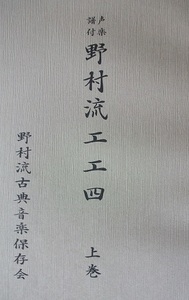 声楽譜付
野村流工工四
上巻
野村流古典音楽保存会